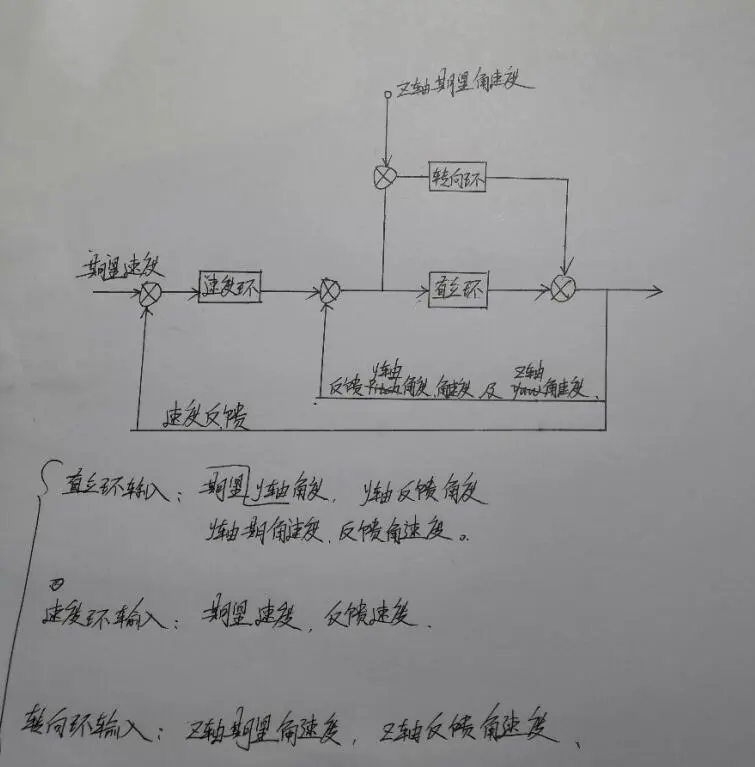 Z轴期望角速度
转向环
期望速度
速度环
直立环
y轴
z轴
反馈角度、角速度及角速度.
速度反馈
直立环输入：期望y轴角度，y轴反馈角度
y轴期角速度，反馈角速度。
速度环输入：期望速度，反馈速度.
转向环输入：Z轴期望角速度，Z轴反馈角速度、